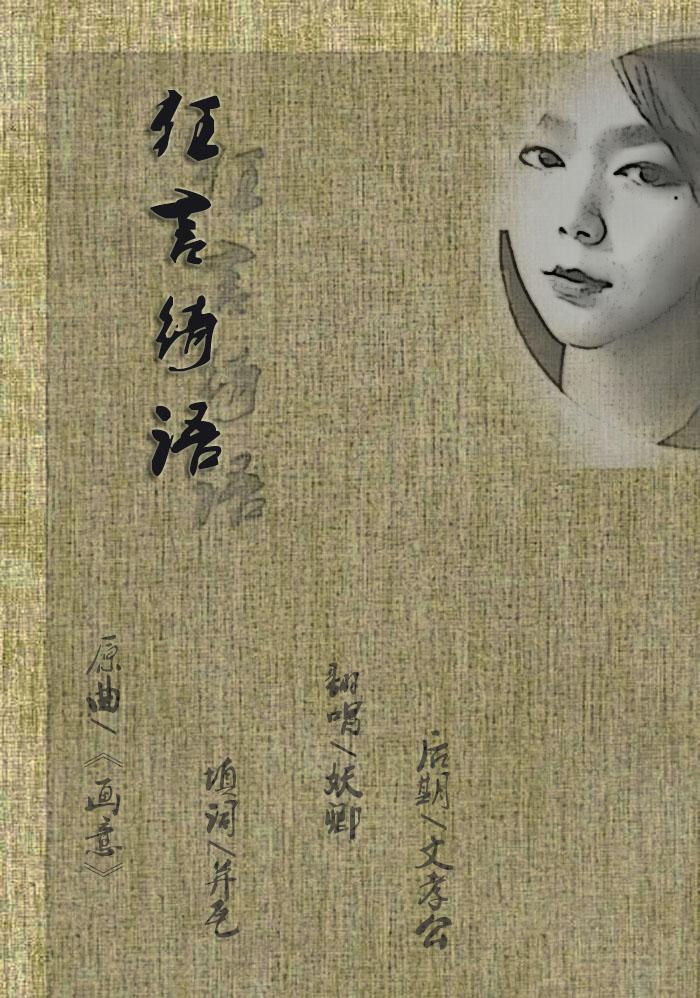 狂言绮语
原曲\《画意》
填词\并毛
翻唱\妖卿
后期\文孝公